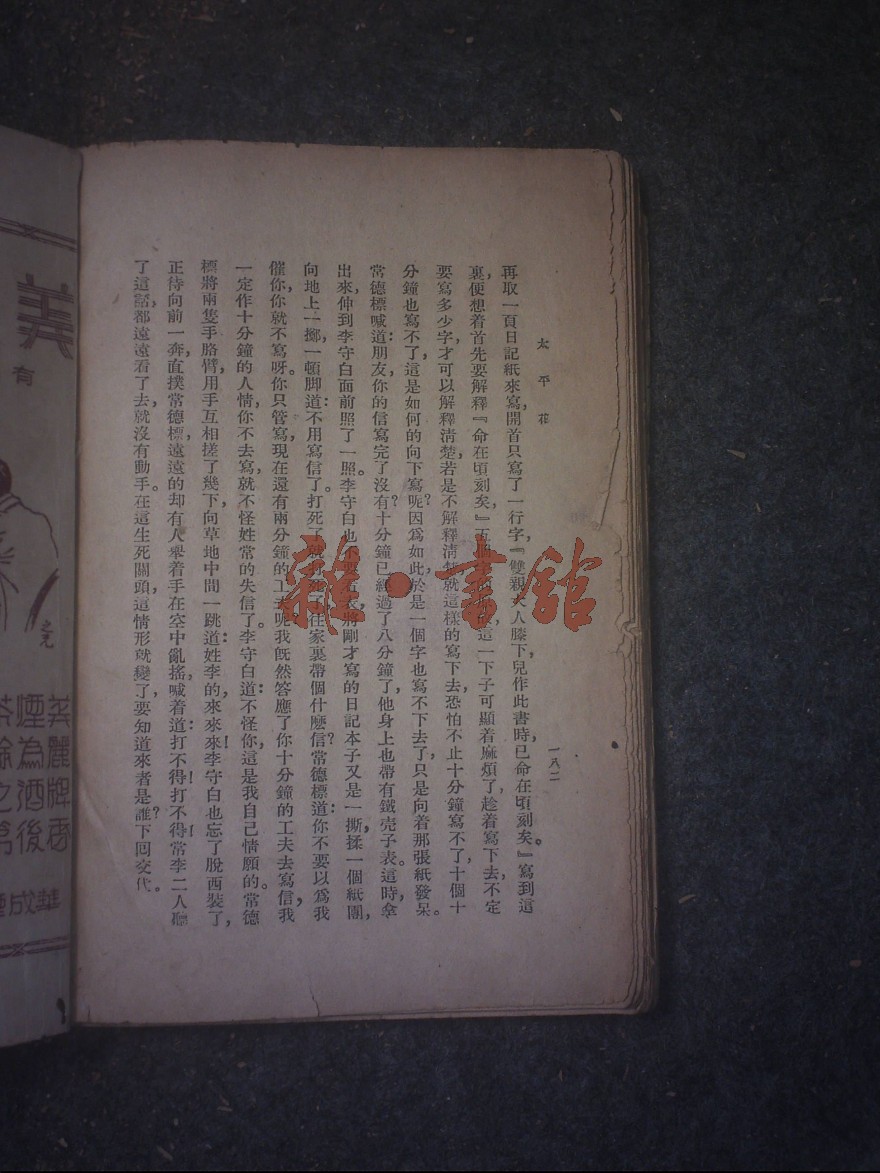 太平花
一八二
再取一頁日記紙來寫，開首只寫了一行字，『雙親大人膝下，兒作此書時，已命在頃刻矣。』寫到這
裏，便想着首先要解釋『命在頃刻矣，』五個字的這一下子可顯着麻煩了，趁着寫下去，不定
要寫多少字，才可以解釋清楚，若是不解釋清楚，就這樣的寫下去，恐怕不止十分鐘寫不了，十個十
分鐘也寫不了，這是如何的向下寫呢？因爲如此，於是一個字也寫不下去了，只是向着那張紙發呆。
常德標喊道：朋友，你的信寫完了沒有？十分鐘已經過了八分鐘了，他身上也帶有鐵壳子表。這時，拿
出來，伸到李守白面前照了一照。李守白也不要看表，將剛才寫的日記本子又是一撕，揉一個紙團，
向地上一擲，一頓脚道：不用寫信了。打死了就打死了，往家裏帶個什麽信？常德標道：你不要以爲我
催你，你就不寫呀。你只管寫，現在還有兩分鐘的工夫呢？我旣然答應了你十分鐘的工夫去寫信，我
一定作十分鐘的人情，你不去寫，就不怪姓常的失信了。李守白道：不怪你，這是我自己情願的。常德
標將兩隻手胳臂，用手互相搓了幾下，向草地中間一跳道：姓李的，來來來！李守白也忘了脫西裝了，
正待向前一奔，直撲常德標，遠遠的却有人舉着手在空中亂搖，喊着道：打不得！打不得！常李二人聽
了這話，都遠遠看了去，就沒有動手。在這生死關頭，這情形就變了，要知道來者是誰？下回交代。
雜·書館
美
有
之光
美麗牌香
煙為酒後
茶餘之
華成